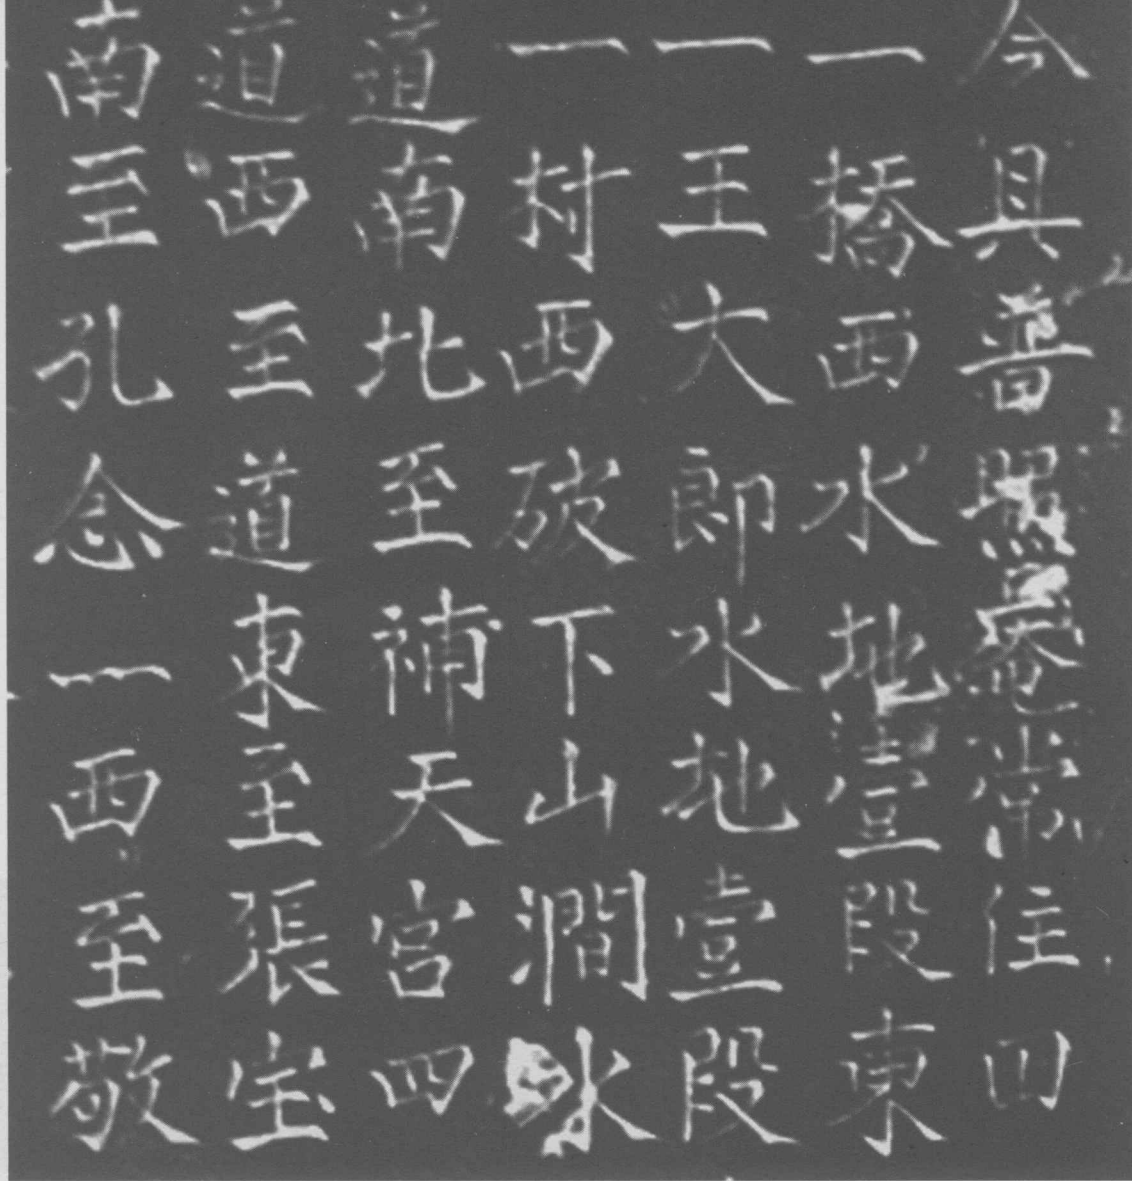 今具普照菴常住四
一橋西水地壹段東
一王大郎水地壹段
一村西砍下山澗水
道南北至補天宮四
道西至道東至張宝
南至孔念一西至敬